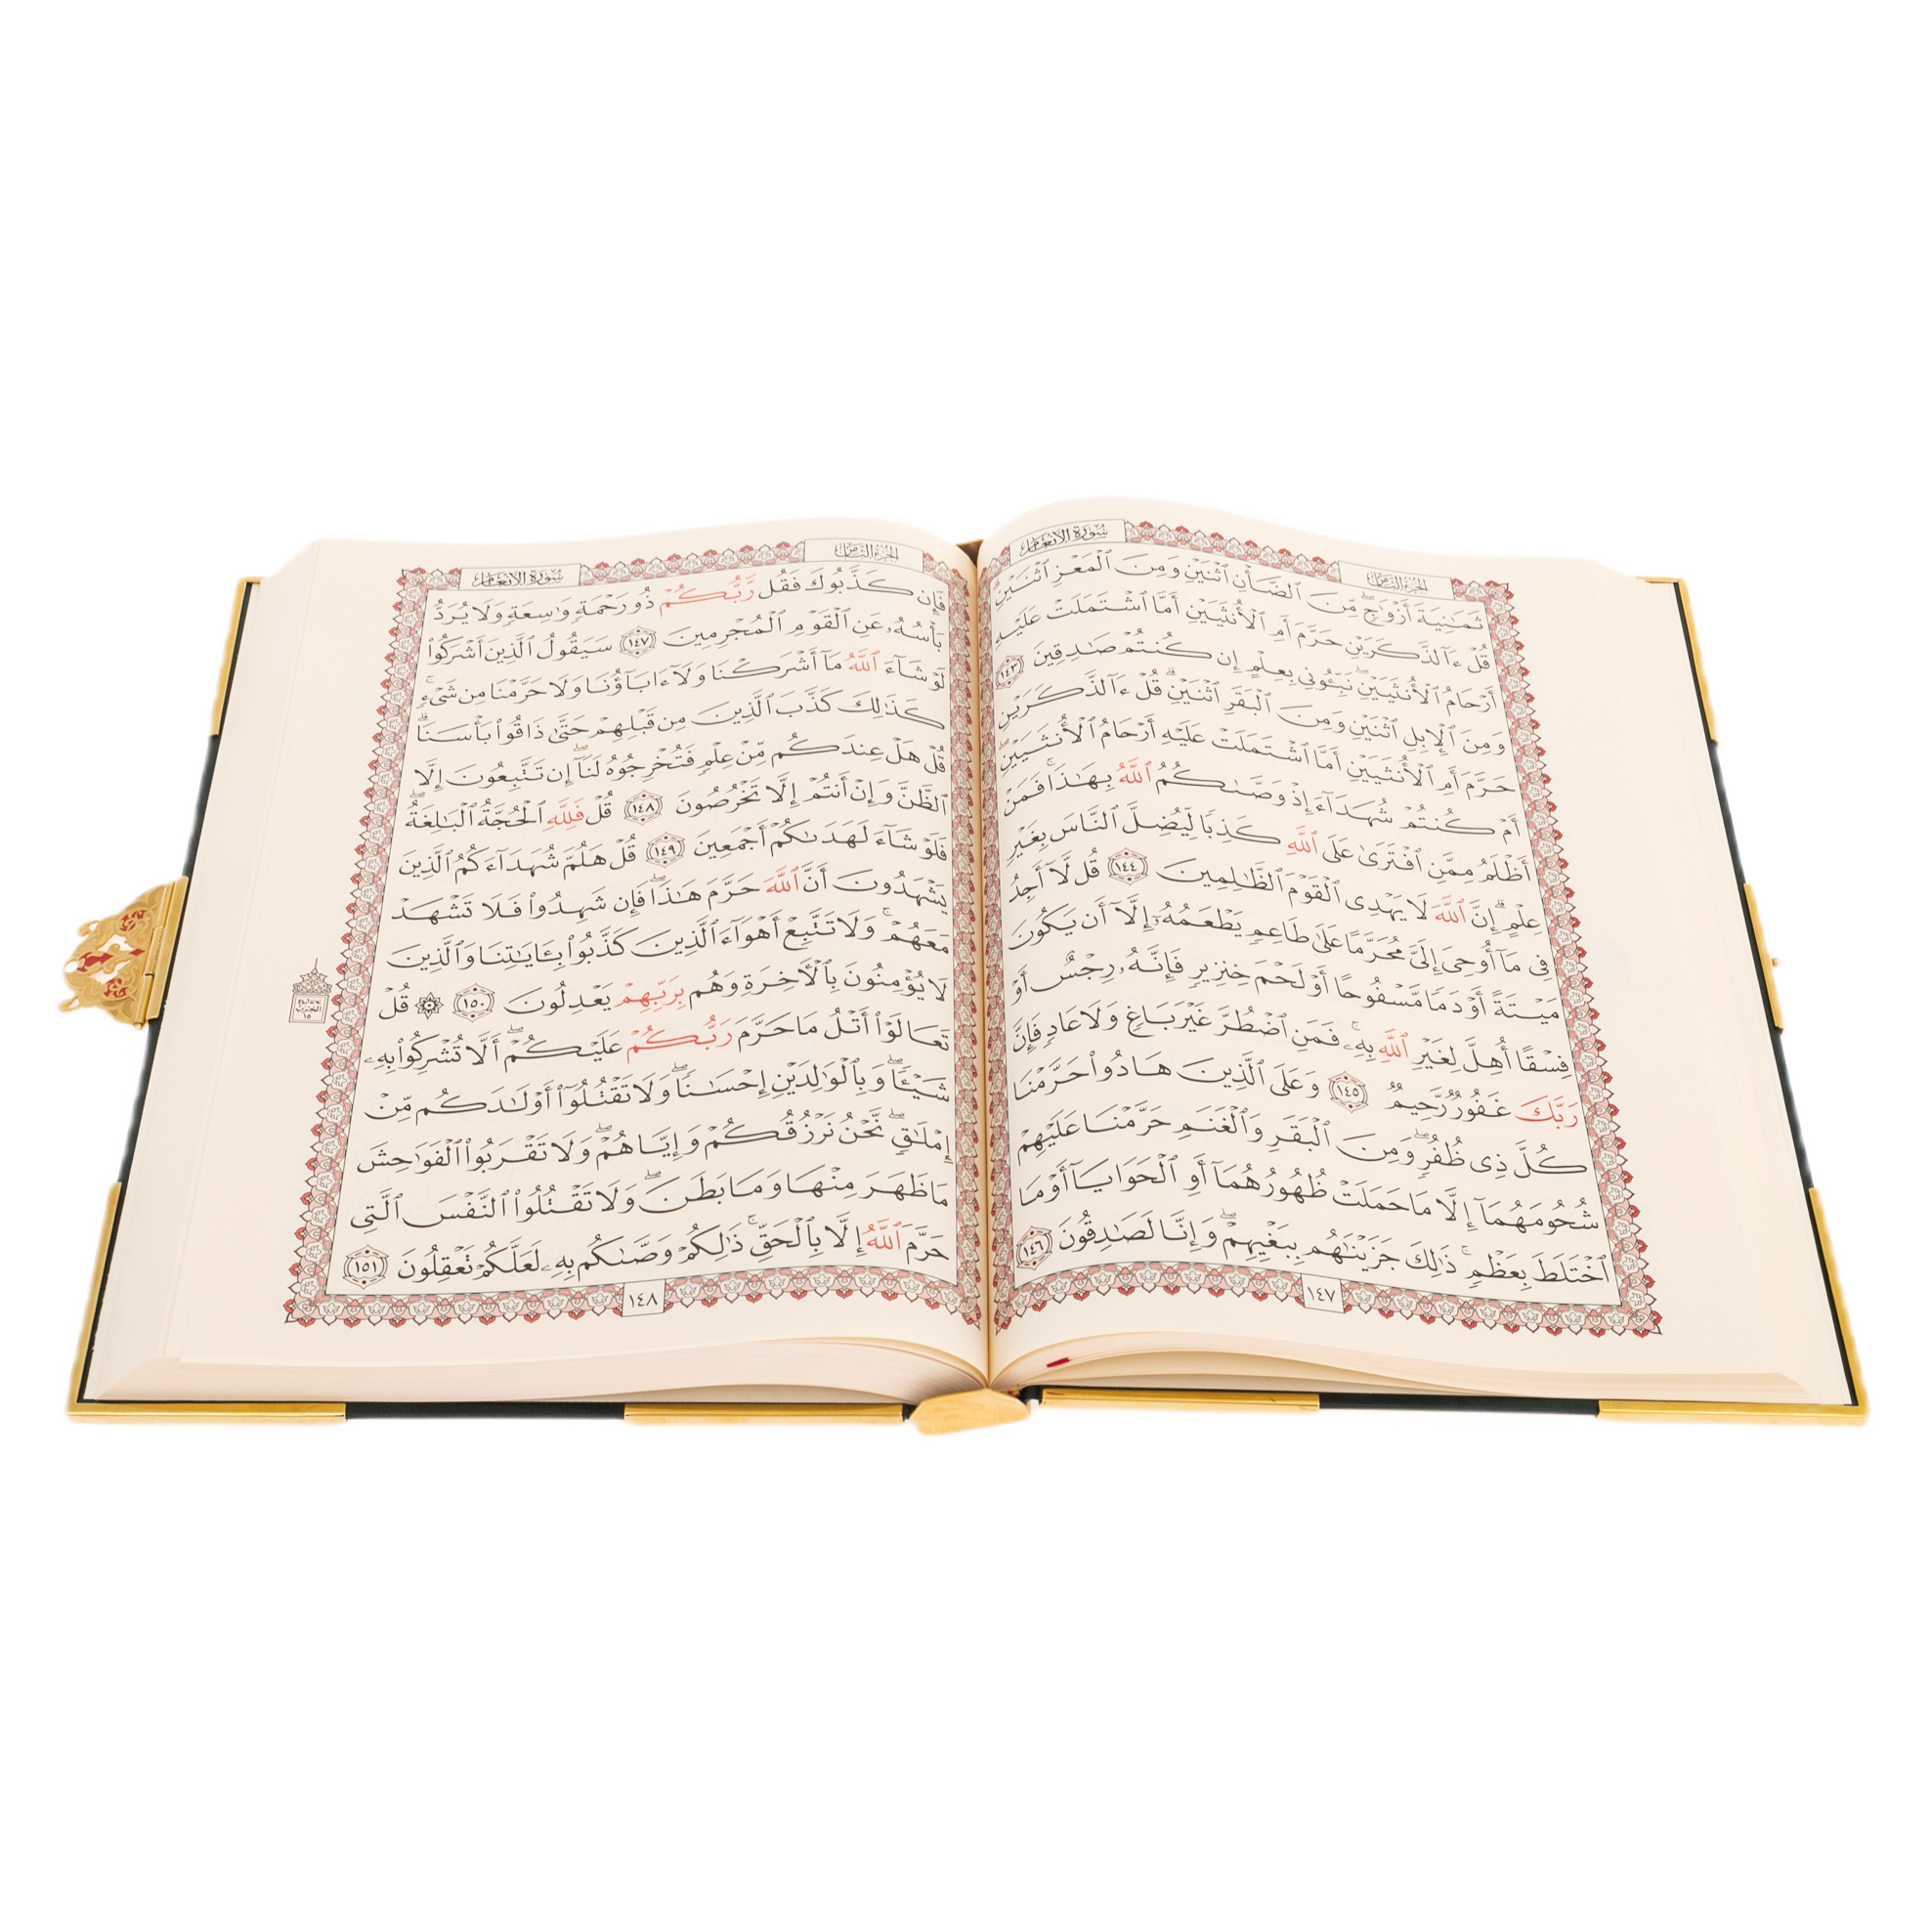 سُورَةُ الأَنْعَامِ
الجُزْءُ الثَّامِنُ
ثَمَٰنِيَةَ أَزْوَٰجٍۖ مِّنَ ٱلضَّأْنِ ٱثْنَيْنِ وَمِنَ ٱلْمَعْزِ ٱثْنَيْنِۗ
قُلْ ءَآلذَّكَرَيْنِ حَرَّمَ أَمِ ٱلْأُنثَيَيْنِ أَمَّا ٱشْتَمَلَتْ عَلَيْهِ
أَرْحَامُ ٱلْأُنثَيَيْنِۖ نَبِّـُٔونِى بِعِلْمٍ إِن كُنتُمْ صَٰدِقِينَ ١٤٣
وَمِنَ ٱلْإِبِلِ ٱثْنَيْنِ وَمِنَ ٱلْبَقَرِ ٱثْنَيْنِۗ قُلْ ءَآلذَّكَرَيْنِ
حَرَّمَ أَمِ ٱلْأُنثَيَيْنِ أَمَّا ٱشْتَمَلَتْ عَلَيْهِ أَرْحَامُ ٱلْأُنثَيَيْنِۖ
أَمْ كُنتُمْ شُهَدَآءَ إِذْ وَصَّىٰكُمُ ٱللَّهُ بِهَٰذَاۚ فَمَنْ
أَظْلَمُ مِمَّنِ ٱفْتَرَىٰ عَلَى ٱللَّهِ كَذِبًا لِّيُضِلَّ ٱلنَّاسَ بِغَيْرِ
عِلْمٍۗ إِنَّ ٱللَّهَ لَا يَهْدِى ٱلْقَوْمَ ٱلظَّٰلِمِينَ ١٤٤ قُل لَّآ أَجِدُ
فِى مَآ أُوحِىَ إِلَىَّ مُحَرَّمًا عَلَىٰ طَاعِمٍ يَطْعَمُهُۥٓ إِلَّآ أَن يَكُونَ
مَيْتَةً أَوْ دَمًا مَّسْفُوحًا أَوْ لَحْمَ خِنزِيرٍ فَإِنَّهُۥ رِجْسٌ أَوْ
فِسْقًا أُهِلَّ لِغَيْرِ ٱللَّهِ بِهِۦۚ فَمَنِ ٱضْطُرَّ غَيْرَ بَاغٍ وَلَا عَادٍ فَإِنَّ
رَبَّكَ غَفُورٌ رَّحِيمٌ ١٤٥ وَعَلَى ٱلَّذِينَ هَادُوا۟ حَرَّمْنَا
كُلَّ ذِى ظُفُرٍۖ وَمِنَ ٱلْبَقَرِ وَٱلْغَنَمِ حَرَّمْنَا عَلَيْهِمْ
شُحُومَهُمَآ إِلَّا مَا حَمَلَتْ ظُهُورُهُمَآ أَوِ ٱلْحَوَايَآ أَوْ مَا
ٱخْتَلَطَ بِعَظْمٍۚ ذَٰلِكَ جَزَيْنَٰهُم بِبَغْيِهِمْۖ وَإِنَّا لَصَٰدِقُونَ ١٤٦
١٤٧
الجُزْءُ الثَّامِنُ
سُورَةُ الأَنْعَامِ
فَإِن كَذَّبُوكَ فَقُل رَّبُّكُمْ ذُو رَحْمَةٍ وَٰسِعَةٍ وَلَا يُرَدُّ
بَأْسُهُۥ عَنِ ٱلْقَوْمِ ٱلْمُجْرِمِينَ ١٤٧ سَيَقُولُ ٱلَّذِينَ أَشْرَكُوا۟
لَوْ شَآءَ ٱللَّهُ مَآ أَشْرَكْنَا وَلَآ ءَابَآؤُنَا وَلَا حَرَّمْنَا مِن شَىْءٍۚ
كَذَٰلِكَ كَذَّبَ ٱلَّذِينَ مِن قَبْلِهِمْ حَتَّىٰ ذَاقُوا۟ بَأْسَنَاۗ
قُلْ هَلْ عِندَكُم مِّنْ عِلْمٍ فَتُخْرِجُوهُ لَنَآۖ إِن تَتَّبِعُونَ إِلَّا
ٱلظَّنَّ وَإِنْ أَنتُمْ إِلَّا تَخْرُصُونَ ١٤٨ قُلْ فَلِلَّهِ ٱلْحُجَّةُ ٱلْبَٰلِغَةُۖ
فَلَوْ شَآءَ لَهَدَىٰكُمْ أَجْمَعِينَ ١٤٩ قُلْ هَلُمَّ شُهَدَآءَكُمُ ٱلَّذِينَ
يَشْهَدُونَ أَنَّ ٱللَّهَ حَرَّمَ هَٰذَاۖ فَإِن شَهِدُوا۟ فَلَا تَشْهَدْ
مَعَهُمْۚ وَلَا تَتَّبِعْ أَهْوَآءَ ٱلَّذِينَ كَذَّبُوا۟ بِـَٔايَٰتِنَا وَٱلَّذِينَ
لَا يُؤْمِنُونَ بِٱلْأَخِرَةِ وَهُم بِرَبِّهِمْ يَعْدِلُونَ ١٥٠ ۞ قُلْ
تَعَالَوْا۟ أَتْلُ مَا حَرَّمَ رَبُّكُمْ عَلَيْكُمْۖ أَلَّا تُشْرِكُوا۟ بِهِۦ
شَيْـًٔاۖ وَبِٱلْوَٰلِدَيْنِ إِحْسَٰنًاۖ وَلَا تَقْتُلُوٓا۟ أَوْلَٰدَكُم مِّنْ
إِمْلَٰقٍۖ نَّحْنُ نَرْزُقُكُمْ وَإِيَّاهُمْۖ وَلَا تَقْرَبُوا۟ ٱلْفَوَٰحِشَ
مَا ظَهَرَ مِنْهَا وَمَا بَطَنَۖ وَلَا تَقْتُلُوا۟ ٱلنَّفْسَ ٱلَّتِى
حَرَّمَ ٱللَّهُ إِلَّا بِٱلْحَقِّۚ ذَٰلِكُمْ وَصَّىٰكُم بِهِۦ لَعَلَّكُمْ تَعْقِلُونَ ١٥١
١٤٨